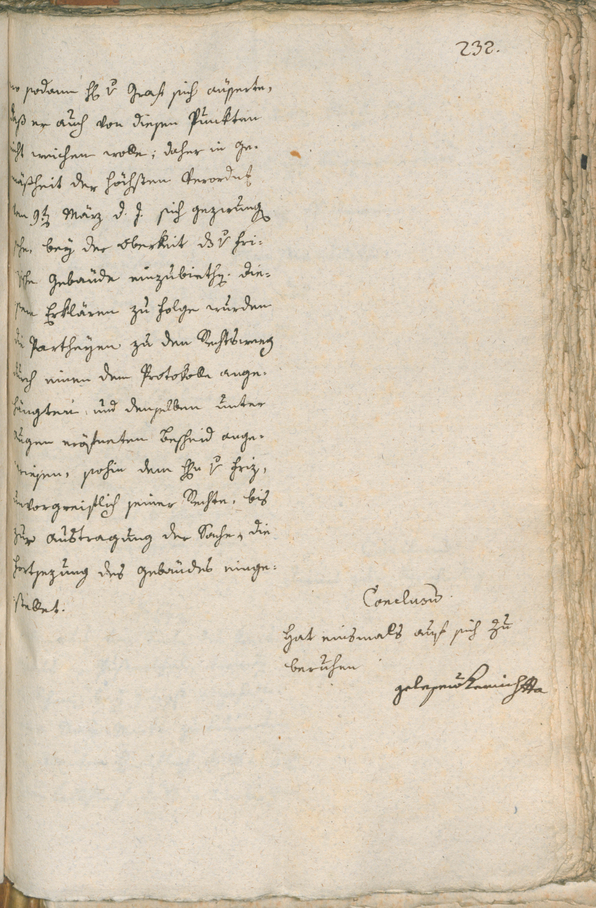 232.
sodann H. v Grasl sich äuserte,
daß er auch von diesen Punkten
nicht weichen wolle; daher in ge-
mäßheit der höchsten Verordnung
den 9t März d. J. sich gezwungen
sehe, bey der Obrkeit d. v Fri-
sche Gebäude einzubiethen. Die-
sem Erklären zu Folge wurden
die Partheyen zu den Rechtsweeg
durch einen dem Protokolle ange-
hängten, und denselben unter
Augen eröfneten Bescheid ange-
wiesen, sohin dem H. v Friz,
unvorgreiflich seiner Rechte, bis
zur Austragung der Sache, die
Fortsezung des Gebäudes einge-
stellet.
Conclusum
Hat einsmals auf sich zu
beruhen
gelesen